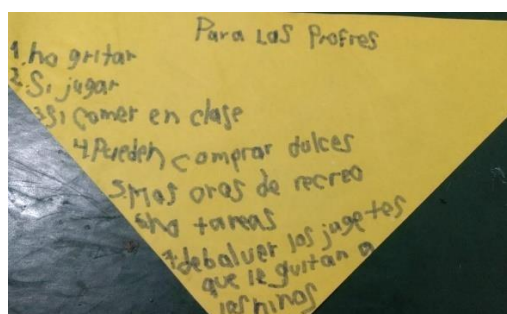 Para Las Profres
1. no gritar
2. Si jugar
3. Si comer en clase
4. Pueden comprar dulces
5. Mas oras de recreo
6. no tareas
7. debaluer los jugetes
que le quitan a
los niños